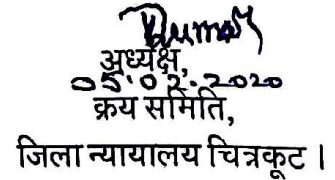 Kumar
अध्यक्ष,
05.02.2020
क्रय समिति,
जिला न्यायालय चित्रकूट ।